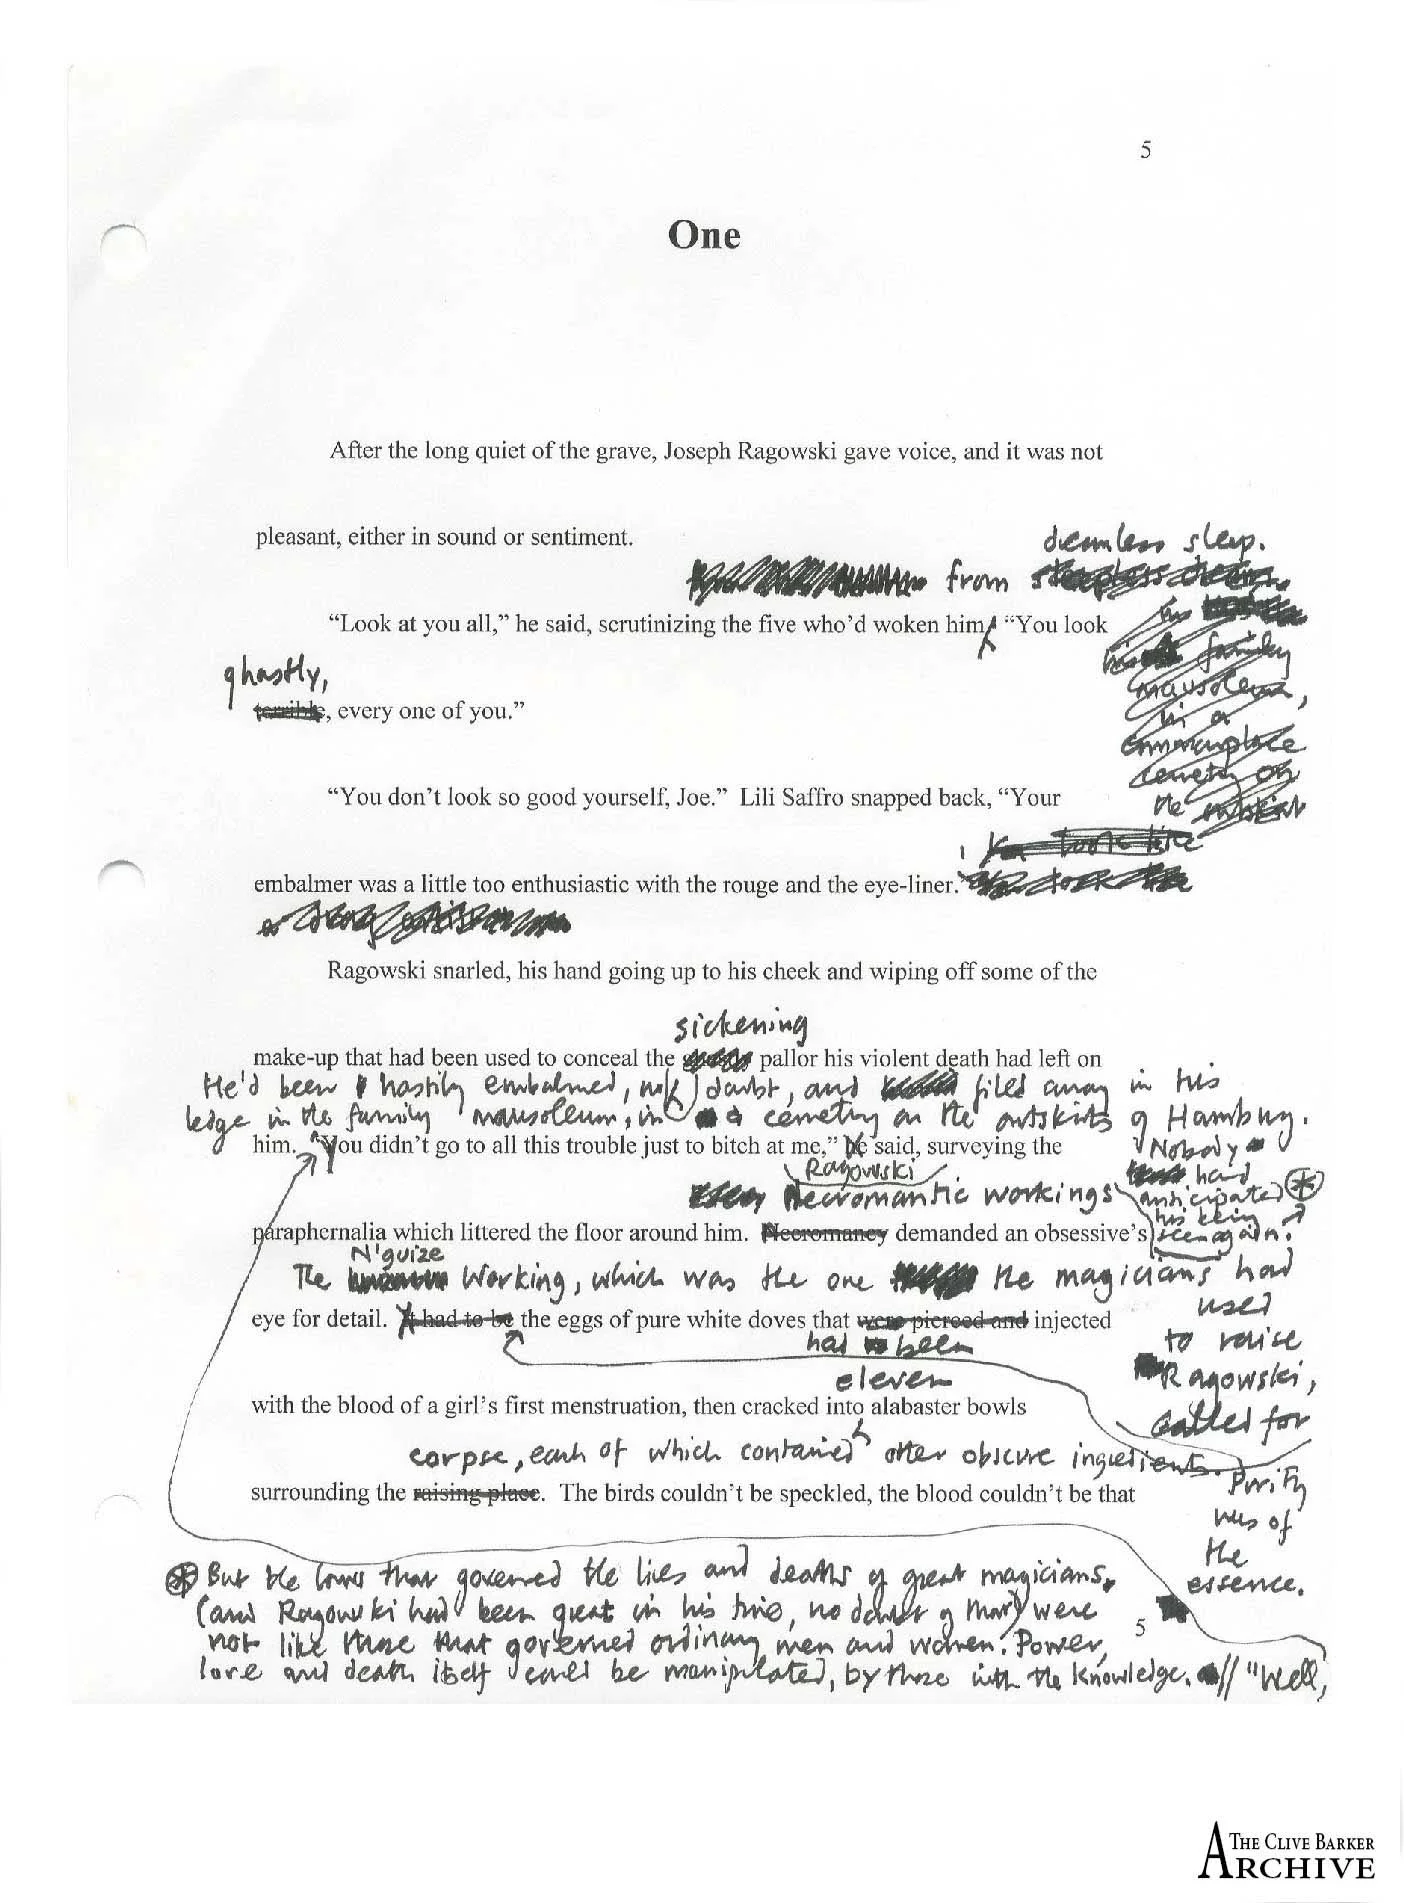 5
One
After the long quiet of the grave, Joseph Ragowski gave voice, and it was not
pleasant, either in sound or sentiment.
dreamless sleep.
from
"Look at you all," he said, scrutinizing the five who'd woken him. "You look
his family
mausoleum,
in a
commonplace
cemetery on
the
ghastly,
terrible, every one of you."
"You don't look so good yourself, Joe." Lili Saffro snapped back, "Your
You look like
embalmer was a little too enthusiastic with the rouge and the eye-liner."
Ragowski snarled, his hand going up to his cheek and wiping off some of the
sickening
make-up that had been used to conceal the pallor his violent death had left on
He'd been hastily embalmed, no doubt, and filed away in his
ledge in the family mausoleum, in a cemetery on the outskirts of Hamburg.
him. "You didn't go to all this trouble just to bitch at me," he said, surveying the
Ragowski
Nobody
had
anticipated
his being
seen again.
Necromantic workings
paraphernalia which littered the floor around him. Necromancy demanded an obsessive's
N'guize
The Working, which was the one the magicians had
used
to raise
Ragowski,
called for
eye for detail. It had to be the eggs of pure white doves that were pierced and injected
had been
eleven
with the blood of a girl's first menstruation, then cracked into alabaster bowls
corpse, each of which contained other obscure ingredients.
Purity
was of
the
essence.
surrounding the raising place. The birds couldn't be speckled, the blood couldn't be that
But the laws that governed the lives and deaths of great magicians,
(and Ragowski had been great in his time, no doubt of that) were
not like those that governed ordinary men and women. Power,
love and death itself could be manipulated, by those with the knowledge. // "Well,
5
THE CLIVE BARKER
ARCHIVE